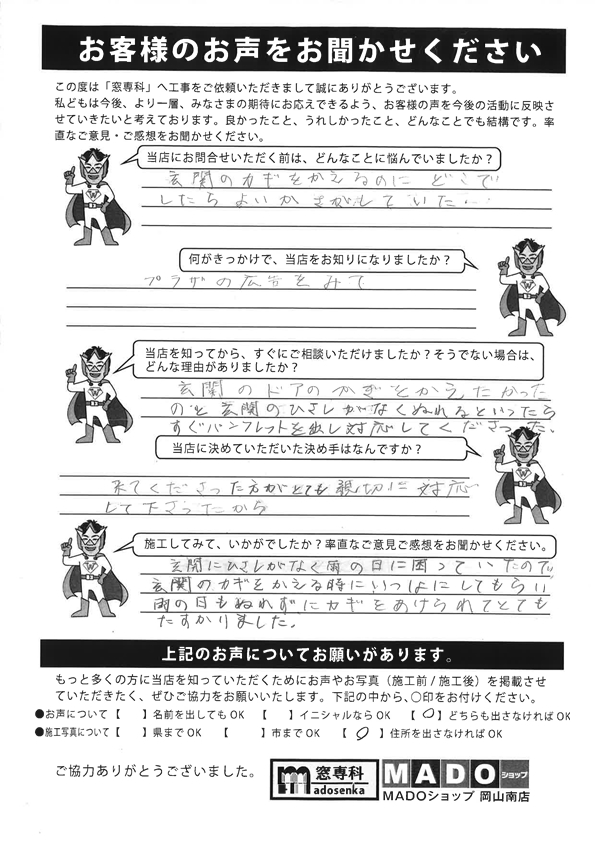 お客様のお声をお聞かせください
この度は「窓専科」へ工事をご依頼いただきまして誠にありがとうございます。
私どもは今後、より一層、みなさまの期待にお応えできるよう、お客様の声を今後の活動に反映さ
せていきたいと考えております。良かったこと、うれしかったこと、どんなことでも結構です。率
直なご意見・ご感想をお聞かせください。
当店にお問合せいただく前は、どんなことに悩んでいましたか？
玄関のカギをかえるのに どこで
したらよいか さがしていた…
何がきっかけで、当店をお知りになりましたか？
プラザの広告をみて
当店を知ってから、すぐにご相談いただけましたか？そうでない場合は、
どんな理由がありましたか？
玄関のドアのかぎをかえたかった
のと玄関のひさしがなくぬれるといったら
すぐパンフレットを出し対応してくださった。
当店に決めていただいた決め手はなんですか？
来てくださった方がとても親切に対応
して下さったから
施工してみて、いかがでしたか？率直なご意見ご感想をお聞かせください。
玄関にひさしがなく雨の日に困っていたので
玄関のカギをかえる時にいっしょにしてもらい
雨の日もぬれずにカギをあけられてとても
たすかりました。
上記のお声についてお願いがあります。
もっと多くの方に当店を知っていただくためにお声やお写真（施工前/施工後）を掲載させ
ていただきたく、ぜひご協力をお願いいたします。下記の中から、○印をお付けください。
●お声について【　】名前を出してもOK　【　】イニシャルならOK　【○】どちらも出さなければOK
●施工写真について【　】県までOK　【　】市までOK　【○】住所を出さなければOK
ご協力ありがとうございました。
窓専科
madosenka
MADOショップ
MADOショップ 岡山南店